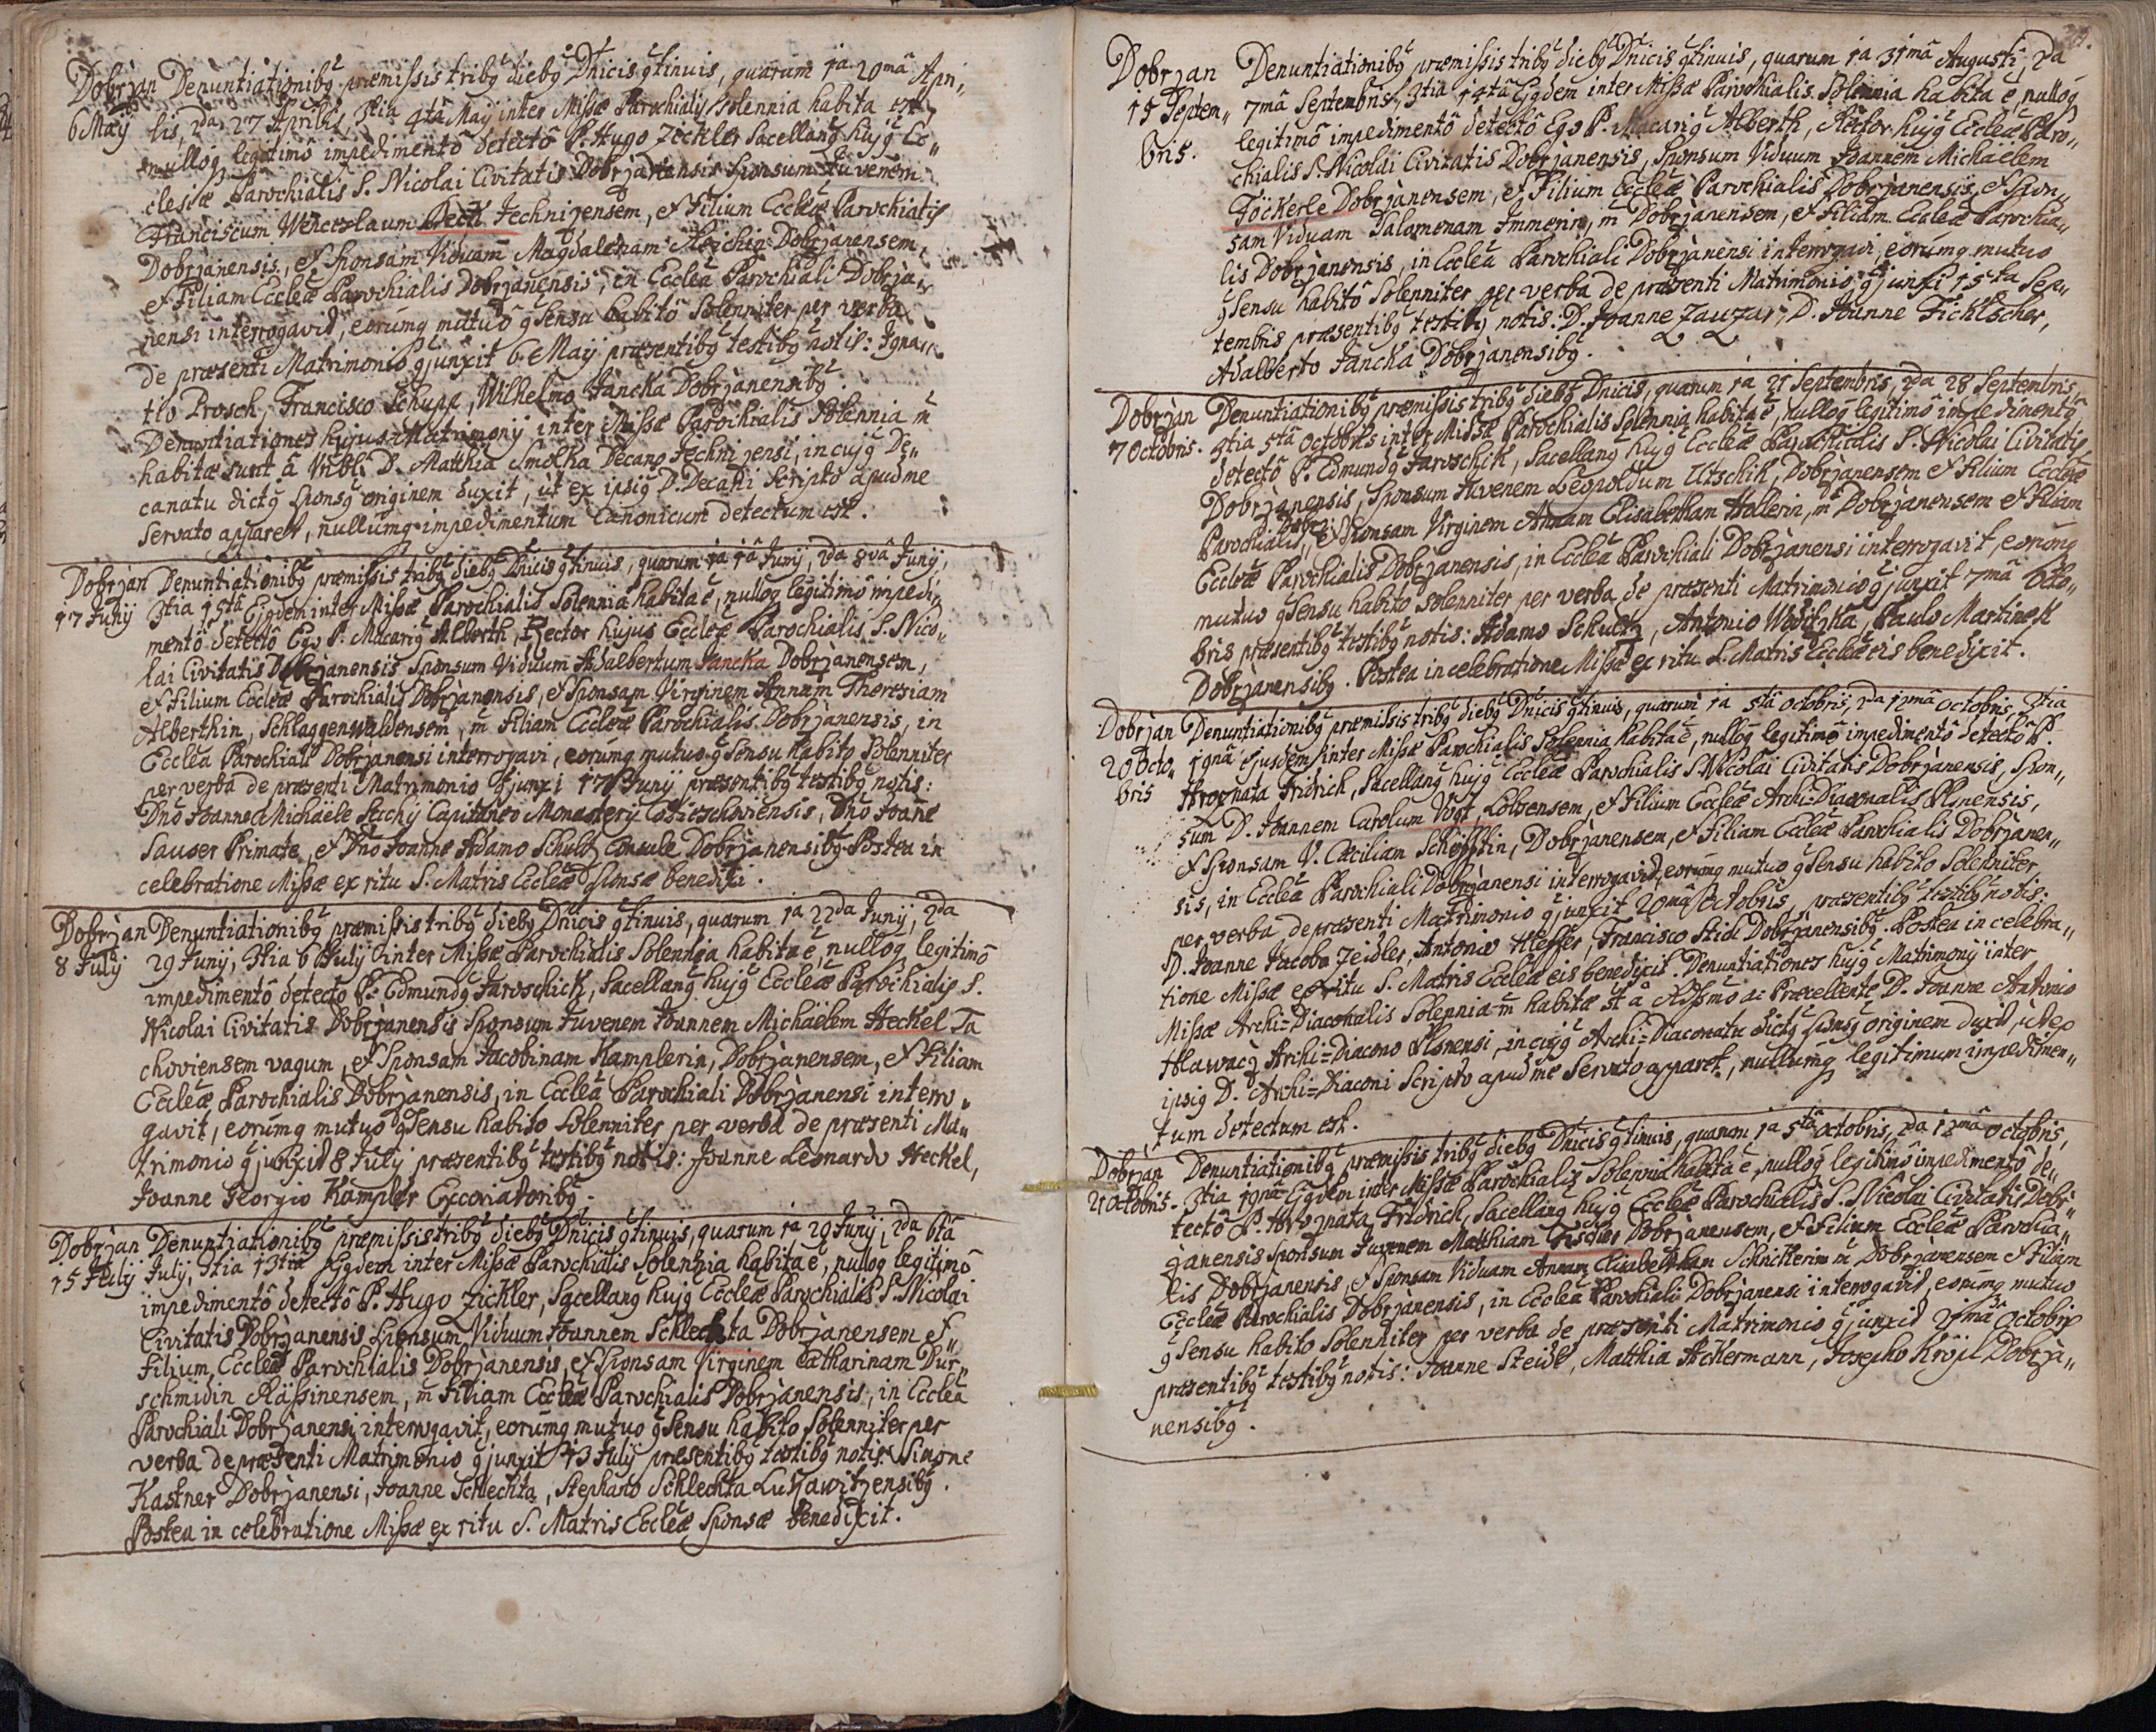 Dobrjan Denuntiationibg præmissis tribg diebg Dnicis gtinuis, quarum 1a 20mâ Apri„
6 Maij lis, 2da 27 Aprilis, 3tia 4tâ Maij inter Missæ Parochialis Solennia habita est
nullog legitimô impedimentô detectô P. Hugo Zickler Sacellang hujg Ec„
clesiæ Parochialis S. Nicolai Civitatis Dobrjanensis Sponsum Juvenem
Franciscum Wenceslaum Pech Technizensem, et Filium Eccleæ Parochialis
Dobrjanensis, et Sponsam Viduam Magdalenam Dobrjanensem,
et Filiam Eccleæ Parochialis Dobrjanensis, in Ecclea Parochiali Dobrja„
nensi interrogavit, eorumg mutuô gSensu habitô Solenniter per verba
de præsenti Matrimoniô gjunxit 6 Maij præsentibg testibg notis: Igna„
tio Prosch, Francisco Schupp, Wilhelmo Jancka Dobrjanensibg.
Denuntiationes hujus Matrimonij inter Missæ Parochialis Solennia m̃
habitæ sunt â Vnbli D. Matthia Smolka Decano Technizensi, in cujg De„
canatu dictg Sponsg originem duxit, ut ex ipsig D. Decani Scripto apud me
Servato apparet, nullumg impedimentum Canonicum detectum est.
Dobrjan Denuntiationibg præmissis tribg diebg Dnicis gtinuis, quarum 1a 1â Junij, 2da 8vâ Junij,
17 Junij 3tia 15tâ Ejgdem inter Missæ Parochialis Solennia habita ẽ, nullog legitimô impedi„
mentô detectô Ego P. Macarig Alberth, Rector hujus Eccleæ Parochialis S. Nico„
lai Civitatis Dobrjanensis Sponsum Viduum Adalbertum Jancka Dobrjanensem,
et Filium Eccleæ Parochialis Dobrjanensis, et Sponsam Virginem Annam Theresiam
Alberthin, Schlaggenwaldensem, m̃ Filiam Eccleæ Parochialis Dobrjanensis, in
Ecclea Parochiali Dobrjanensi interrogavi, eorumg mutuo gSensu habito Solenniter
per verba de præsenti Matrimonio gjunxi 17 Junij præsentibg testibg notis:
Dño Joanne Michaële Pachij Capitaneo Monasterij Chotieschoviensis, Dño Joañe
Sauser Primate, et Dño Joanne Adamo Schultz Consule Dobrjanensibg. Postea in
celebratione Missæ ex ritu S. Matris Eccleæ Sponsæ benedixi.
Dobrjan Denuntiationibg præmissis tribg diebg Dnicis gtinuis, quarum 1a 22da Junij, 2da
8 Julij 29 Junij, 3tia 6 Julij inter Missæ Parochialis Solennia habita ẽ, nullog legitimô
impedimentô detecto P. Edmundg Jaroschick, Sacellang hujg Eccleæ Parochialis S.
Nicolai Civitatis Dobrjanensis Sponsum Juvenem Joannem Michaëlem Heckel Ta
choviensem vagum, et Sponsam Jacobinam Kamplerin, Dobrjanensem, et Filiam
Eccleæ Parochialis Dobrjanensis, in Ecclea Parochiali Dobrjanensi interro„
gavit, eorumg mutuo gSensu habito Solenniter per verba de præsenti Ma„
trimonio gjunxit 8 Julij præsentibg testibg notis: Joanne Leonardo Heckel,
Joanne Georgio Kampler Excoriatoribg.
Dobrjan Denuntiationibg præmissis tribg diebg Dnicis gtinuis, quarum 1a 29 Junij, 2da 6tâ
15 Julij Julij, 3tia 13tiâ Ejgdem inter Missæ Parochialis Solennia habita ẽ, nullog legitimô
impedimentô detectô P. Hugo Zickler, Sacellang hujg Eccleæ Parochialis S. Nicolai
Civitatis Dobrjanensis Sponsum Viduum Joannem Schlechta Dobrjanensem et
Filium Eccleæ Parochialis Dobrjanensis, et Sponsam Virginem Catharinam Dur„
schmidin Rässinensem, m̃ Filiam Eccleæ Parochialis Dobrjanensis, in Ecclea
Parochiali Dobrjanensi interrogavit, eorumg mutuo gSensu habito Solenniter per
verba de præsenti Matrimonio gjunxit 13 Julij præsentibg testibg notis: Simone
Kastner Dobrjanensi, Joanne Schlechta, Stephano Schlechta Lukawitzensibg.
Postea in celebratione Missæ ex ritu S. Matris Eccleæ Sponsæ benedixit.
Dobrjan Denuntiationibg præmissis tribg diebg Dnicis gtinuis, quarum 1a 31mâ Augusti 2da
15 Septem„ 7mâ Septembris, 3tia 14tâ Ejgdem inter Missæ Parochialis Solennia habita ẽ, nullog
bris. legitimô impedimentô detectô Ego P. Macarig Alberth, Rector hujg Eccleæ Paro„
chialis S. Nicolai Civitatis Dobrjanensis, Sponsum Viduum Joannem Michaëlem
Föckerle Dobrjanensem, et Filium Eccleæ Parochialis Dobrjanensis, et Spon„
sam Viduam Salomenam Immerin, m̃ Dobrjanensem, et Filiam Eccleæ Parochia„
lis Dobrjanensis, in Ecclea Parochiali Dobrjanensi interrogavi, eorumg mutuo
gSensu habitô Solenniter per verba de præsenti Matrimonio gjunxi 15ta Sep„
tembris præsentibg testibg notis: D. Joanne Zauzar, D. Joanne Fichtscher,
Adalberto Jancka Dobrjanensibg.
Dobrjan Denuntiationibg præmissis tribg diebg Dnicis, quarum 1a 21 Septembris, 2da 28 Septembris,
7 Octobris. 3tia 5tâ Octobris inter Missæ Parochialis Solennia habita ẽ, nullog legitimô impedimentô
detectô P. Edmundg Jaroschik, Sacellang hujg Eccleæ Parochialis S. Nicolai Civitatis
Dobrjanensis, Sponsum Juvenem Leopoldum Utschik, Dobrjanensem et Filium Eccleæ
Parochialis Dobrj: et Sponsam Virginem Annam Elisabetham Hollerin, m̃ Dobrjanensem et Filiam
Eccleæ Parochialis Dobrjanensis, in Ecclea Parochiali Dobrjanensi interrogavit, eorumg
mutuo gSensu habito solenniter per verba de præsenti Matrimonio gjunxit 7mâ Octo„
bris præsentibg testibg notis: Adamo Schultz, Antonio Woditzka, Paulo Martinek
Dobrjanensibg. Postea in celebratione Missæ ex ritu S. Matris Eccleæ eis benedixit.
Dobrjan Denuntiationibg præmissis tribg diebg Dnicis gtinuis, quarum 1a 5tâ Octobris, 2da 12mâ Octobris, 3tia
20 Octo„ 19nâ ejusdem inter Missæ Parochialis Solennia habita ẽ, nullog legitimô impedimentô detectô P.
bris Hroznata Fridrich, Sacellang hujg Eccleæ Parochialis S. Nicolai Civitatis Dobrjanensis, Spon„
sum D. Joannem Carolum Vogt, et Filium Eccleæ Archi=Diaconalis Plsnensis,
et Sponsam V. Cæciliam Dobrjanensem, et Filiam Eccleæ Parochialis Dobrjanen„
sis, in Ecclea Parochiali Dobrjanensi interrogavit, eorumg mutuo gSensu habito Solenniter
per verba de præsenti Matrimonio gjunxit 20mâ Octobris, præsentibg testibg notis:
D. Joanne Jacobo Zeidler, Antonio Heffler, Francisco Stidl Dobrjanensibg. Postea in celebra„
tione Missæ ex ritu S. Matris Eccleæ eis benedixit. Denuntiationes hujg Matrimonij inter
Missæ Archi=Diaconalis Solennia m̃ habitæ st â Rdssmo ac Præcellente D. Joanne Antonio
Hlawacz Archi=Diacono Plsnensi, in cujg Archi=Diaconatu dictg Sponsg originem duxit, ut ex
ipsig D. Archi=Diaconi Scripto apud me Servato apparet, nullumg legitimum impedimen„
tum detectum est.
Dobrjan Denuntiationibg præmissis tribg diebg Dnicis gtinuis, quarum 1a 5tâ Octobris, 2da 12mâ Octobris,
21 Octobris. 3tia 19nâ Ejgdem inter Missæ Parochialis Solennia habita ẽ, nullog legitimô impedimentô de„
tectô P. Hroznata Fridrich, Sacellang hujg Eccleæ Parochialis S. Nicolai Civitatis Dobr„
janensis Sponsum Juvenem Matthiam Fischer Dobrjanensem, et Filium Eccleæ Parochia„
lis Dobrjanensis, et Sponsam Viduam Annam Elisabetham m̃ Dobrjanensem et Filiam
Eccleæ Parochialis Dobrjanensis, in Ecclea Parochiali Dobrjanensi interrogavit, eorumg mutuo
gSensu habito Solenniter per verba de præsenti Matrimonio gjunxit 21mâ Octobris
præsentibg testibg notis: Joanne Steidl, Matthia Ackermann, Josepho Kröpl Dobrja„
nensibg.